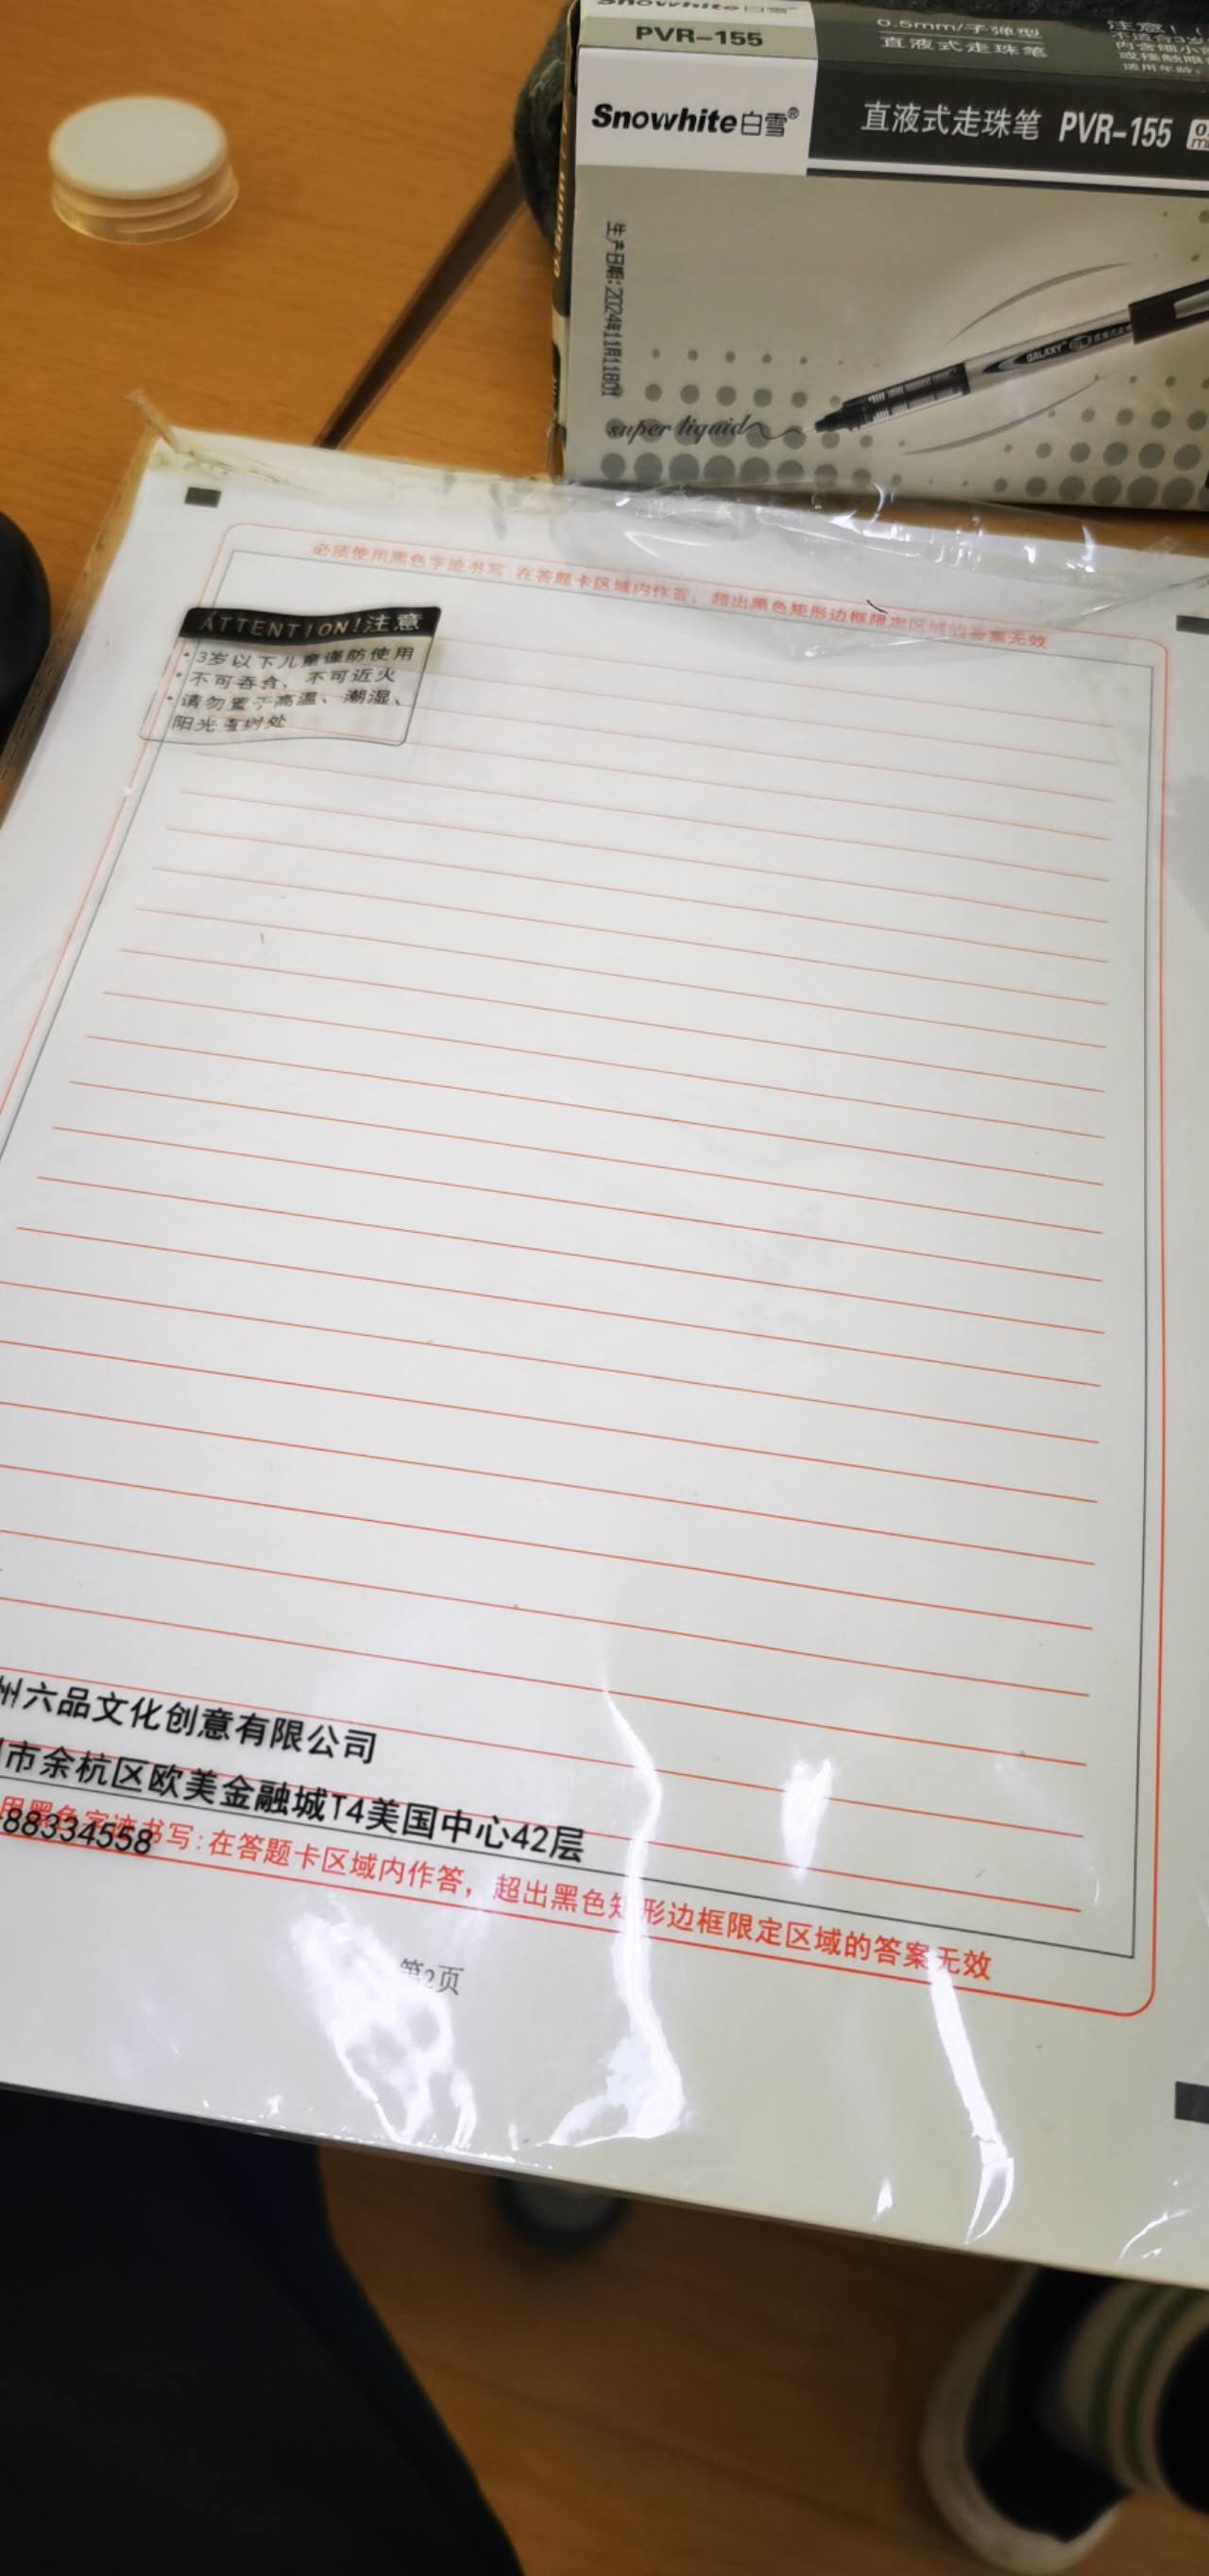 Snowhite白雪
PVR-155
0.5mm/子弹型
直液式走珠笔
注意！
不适合3岁
内含细小
或接触眼
适用年龄：
Snowhite白雪®
直液式走珠笔 PVR-155
生产日期:2024年11月11日01
GALAXY
super liquid
必须使用黑色字迹书写:在答题卡区域内作答，超出黑色矩形边框限定区域的答案无效
ATTENTION!注意
·3岁以下儿童谨防使用
·不可吞食，不可近火
·请勿置于高温、潮湿、
阳光直射处
州六品文化创意有限公司
市余杭区欧美金融城T4美国中心42层
-88334558
用黑色字迹书写:在答题卡区域内作答，超出黑色矩形边框限定区域的答案无效
第2页